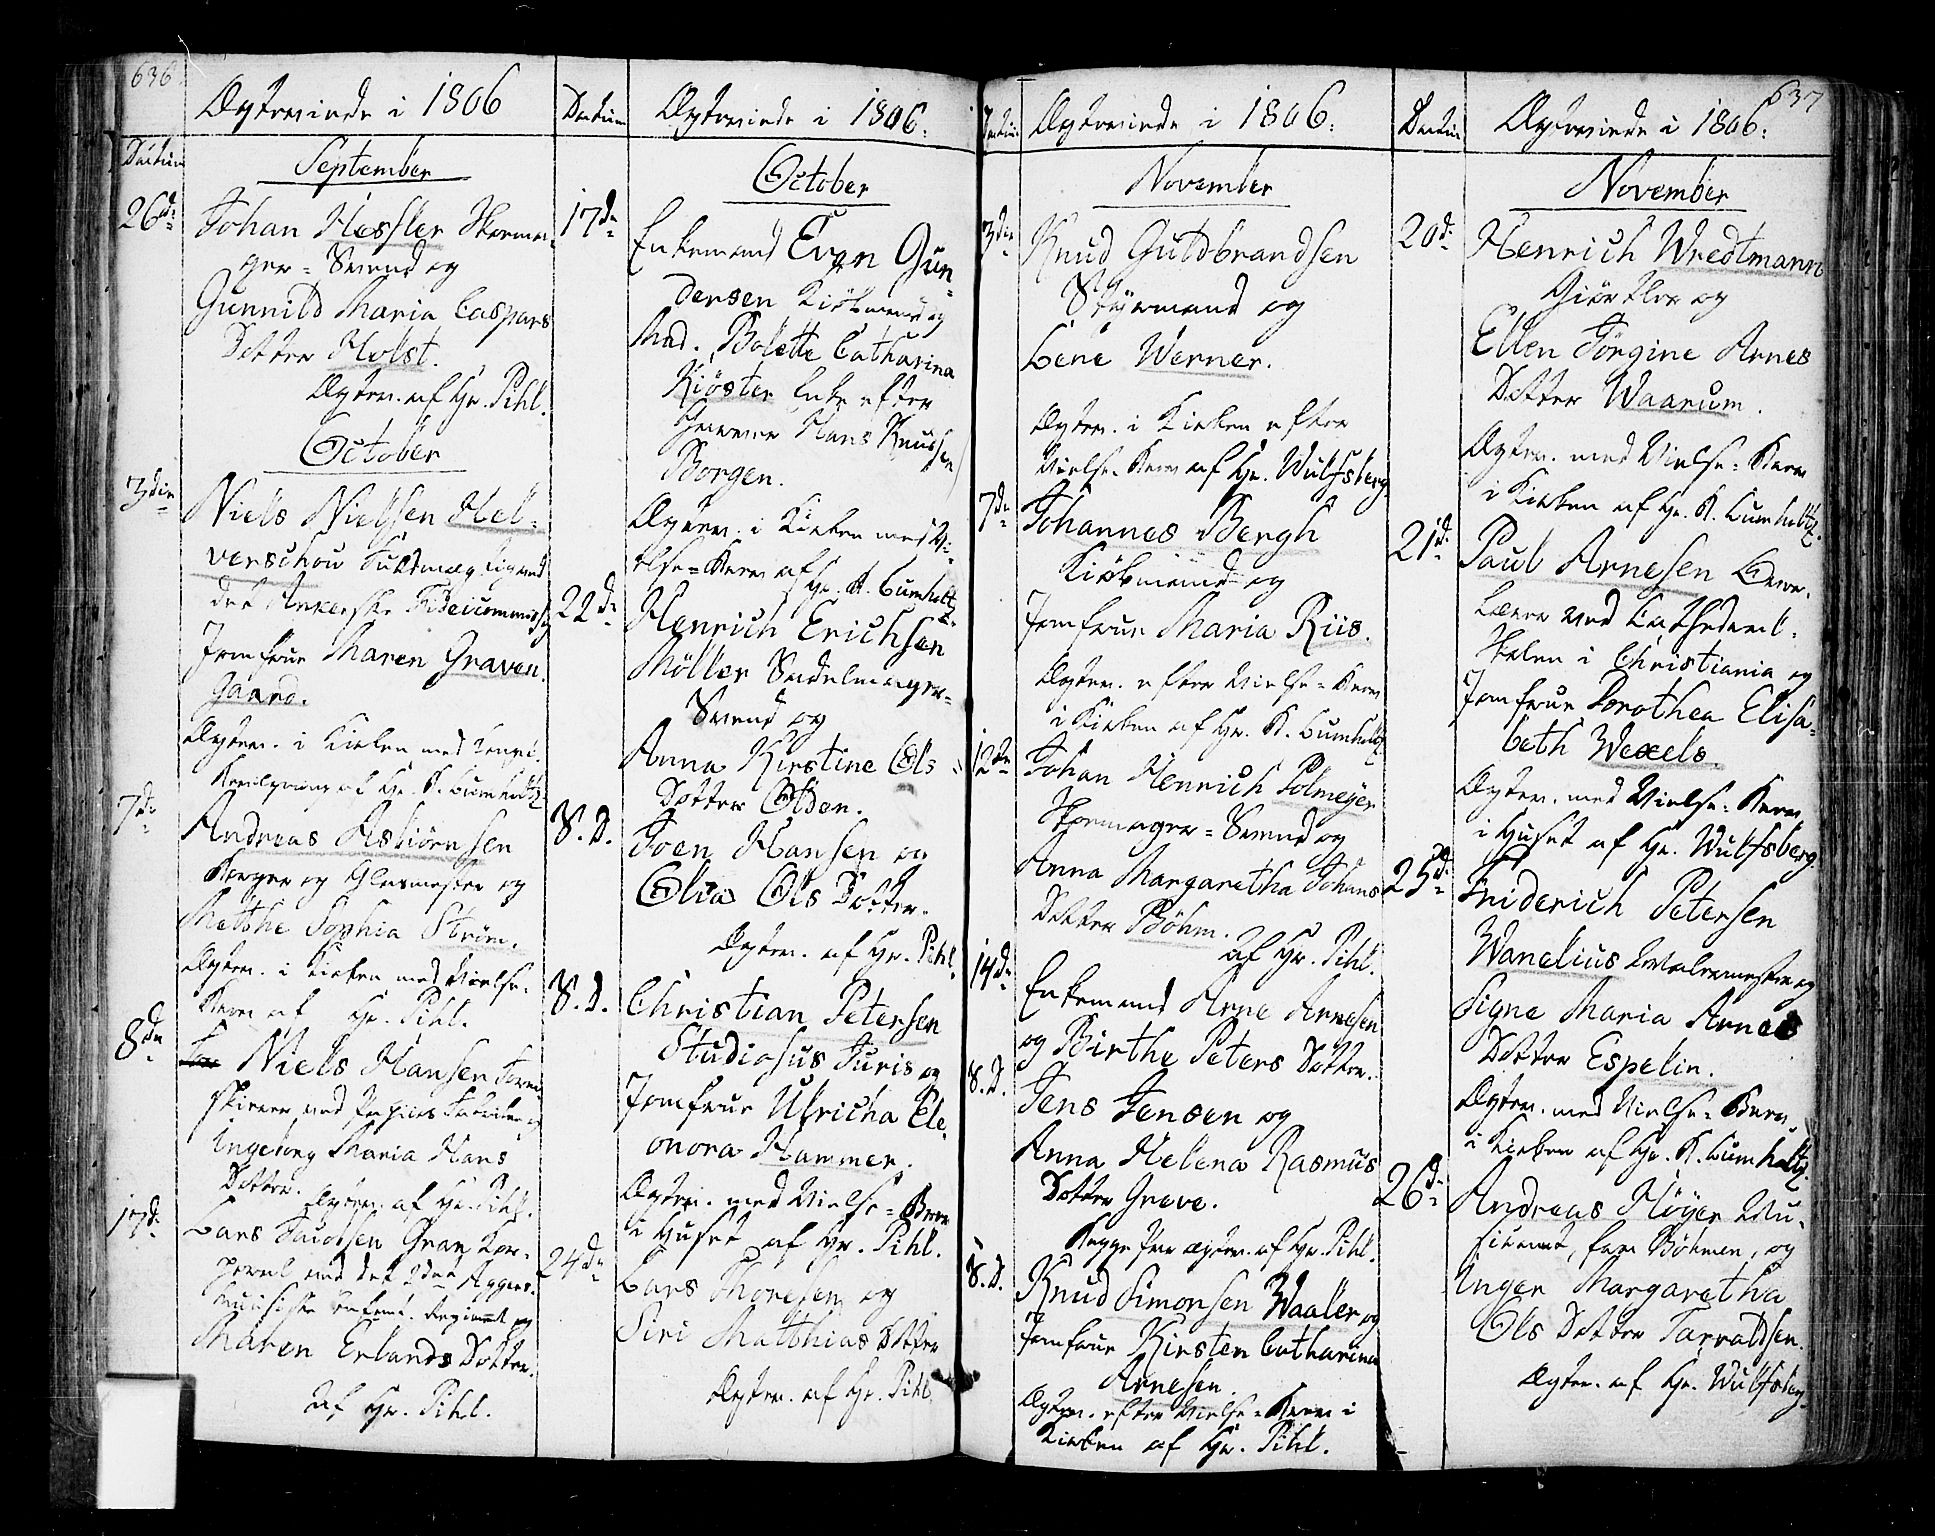 636
Ægteviede i 1806
Datum
September
26de
Johan Hessler Skoema-
ger-Svend og
Gunnild Maria Caspars
Datter Holst.
Ægtev. af Hr. Pihl.
October
3die
Niels Nielsen Hel-
verschou Fuldmægtig ved
det Ankerske Fideicommiss og
Jomfrue Maren Graven
gaard.
Ægtev. i Kirken med
af Hr. K. Lumholtz
7de
Andreas Asbiörnsen
Borger og Glasmester og
Metthe Sophia Ström.
Ægtev. i Kirken med Vielse-
Brev af Hr. Pihl.
8de
Niels Hansen
skriver ved
Ingeborg Maria Hans
Datter. Ægtev. af Hr. Pihl.
17de
Lars Jacobsen Gran Cor-
poral ved det 2det Agger-
huusiske Infant. Regiment og
Maren Erlands Datter.
af Hr. Pihl.
Datum
Ægteviede i 1806.
October
17de
Enkemand Even Gun-
dersen Kiöbmand og
Mad. Bolette Catharina
Kiöster Enke efter
Hans Knudsen
Borgen.
Ægtev. i Kirken med Vi-
else-Brev af Hr. K. Lumholtz
22de
Henrich Erichsen
Möller Sadelmager-
Svend og
Anna Kirstine Ols
Datter Olden.
S. D.
Joen Hansen og
Olia Ols Datter.
Ægtev. af Hr. Pihl.
S. D.
Christian Petersen
Studiosus Juris og
Jomfrue Ulricha Ele-
onora Hammer.
Ægtev. med Vielse-Brev
i Huset af Hr. Pihl.
24de
Lars Thoresen og
Siri Matthias Datter
Ægtev. af Hr. Pihl
Datum
Ægteviede i 1806.
November
3die
Knud Guldbrandsen
Styrmand og
Lene Werner.
Ægtev. i Kirken efter
Vielse-Brev af Hr. Wulfsberg.
7de
Johannes Bergh
Kiöbmand og
Jomfrue Maria Riis.
Ægtev. efter Vielse-Brev
i Kirken af Hr. K. Lumholtz
12te
Johan Henrich Polmeyer
Skoemager-Svend og
Anna Margaretha Johans
Datter Böhm.
af Hr. Pihl.
14de
Enkemand Arne Arnesen
og Birthe Peters Datter.
S. D.
Jens Jensen og
Anna Helena Rasmus
Datter Greve.
Begge Par Ægtev. af Hr. Pihl.
S. D.
Knud Simonsen Waaler og
Jomfrue Kirsten Catharina
Arnesen.
Ægtev. efter Vielse-Brev i
Kirken af Hr. Pihl.
637
Datum
Ægteviede i 1806.
November
20de
Henrich Wredtmann
Giörtler og
Ellen Jörgine Arnes
Datter Waarum.
Ægtev. med Vielse-Brev
i Kirken af Hr. K. Lumholtz.
21de
Paul Arnesen Over-
Lærer ved Cathedral-
Skolen i Christiania og
Jomfrue Dorothea Elisa-
beth Wexels.
Ægtev. med Vielse-Brev
i Huset af Hr. Wulfsberg.
25de
Friderich Petersen
Wanelius Malermester og
Signe Maria Arnes
Datter Espelin.
Ægtev. med Vielse-Brev
i Kirken af Hr. K. Lumholtz.
26de
Andreas Höyer Mu-
sicant, fra Böhmen, og
Inger Margaretha
Ols Datter Tarraldsen.
Ægtev. af Hr. Wulfsberg